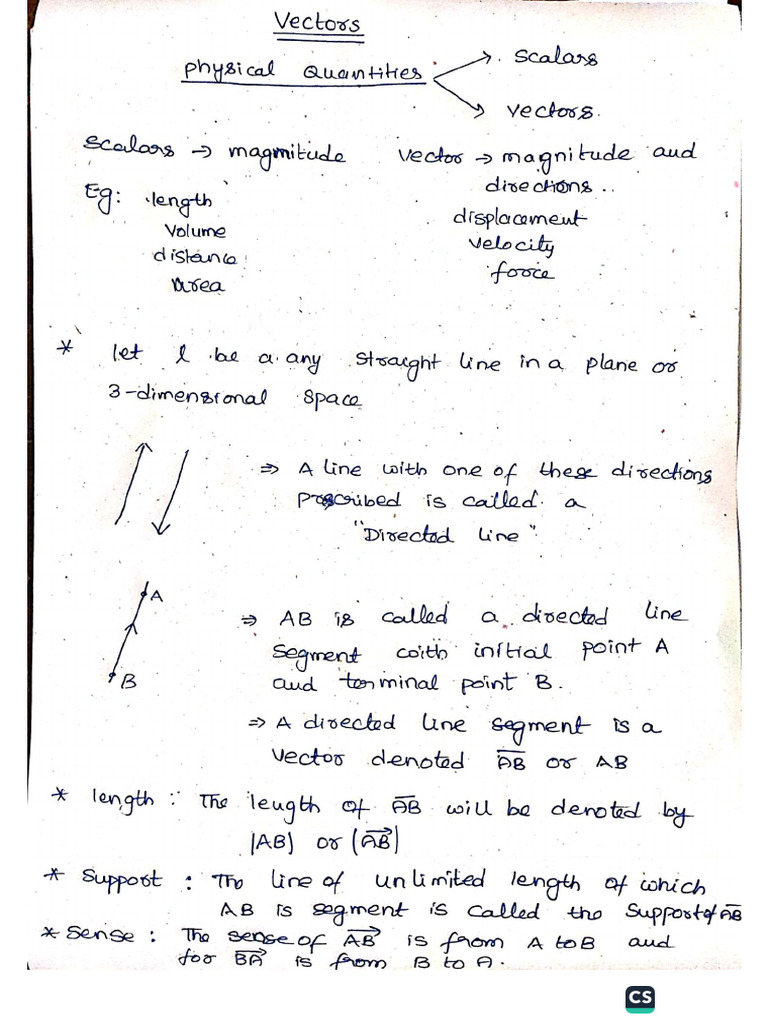 Vectors
Physical Quantities → Scalars
→ vectors.
Scalars → magmitude
vector → magnitude and
directions..
Eg: length
volume
distance
area
displacement
velocity
force
* let l be a any straight line in a plane or
3-dimensional space
⇒ A line with one of these directions
prescribed is called a
"Directed line"
A
B
⇒ AB is called a directed line
segment with initial point A
and terminal point B.
⇒ A directed line segment is a
vector denoted A̅B̅ or AB
* length: The length of A̅B̅ will be denoted by
|AB| or |\overrightarrow{AB}|
* Support: The line of unlimited length of which
AB is segment is called the support of A̅B̅
* Sense: The sense of \overrightarrow{AB} is from A to B and
for \overrightarrow{BA} is from B to A.
CS